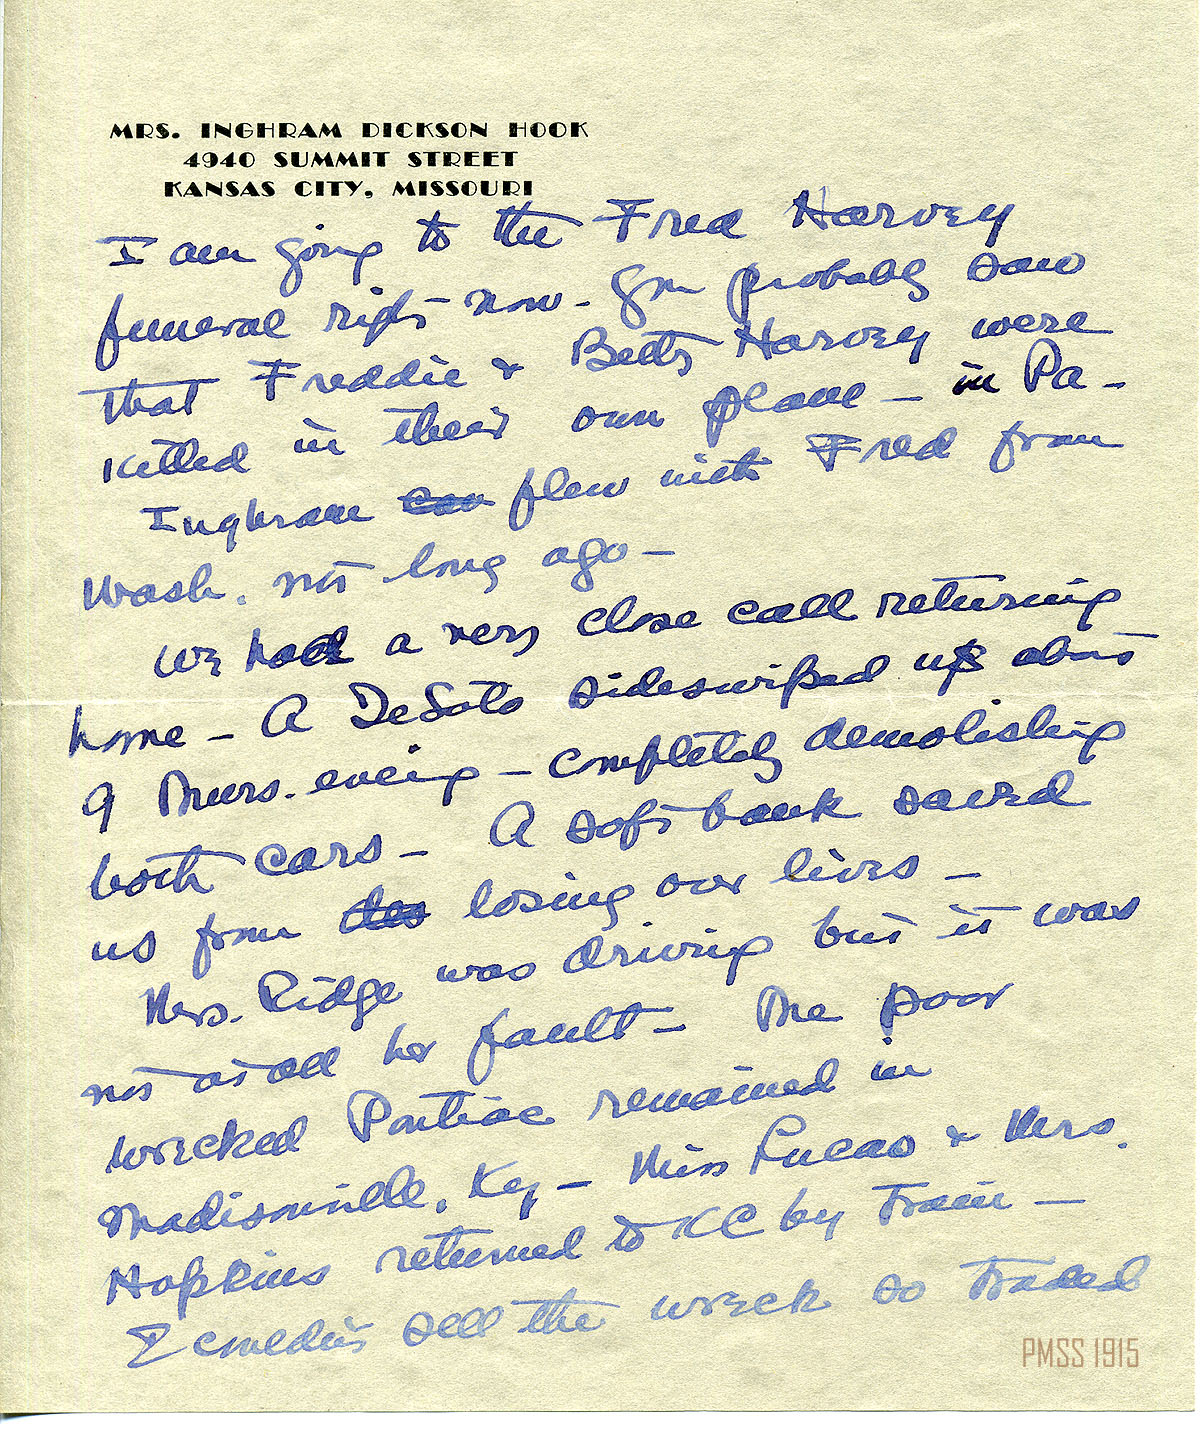 MRS. INGHRAM DICKSON HOOK
4940 SUMMIT STREET
KANSAS CITY, MISSOURI
I am going to the Fred Harvey
funeral right now - You probably saw
that Freddie & Betty Harvey were
killed in their own plane - in Pa -
Inghram flew with Fred from
Wash. not long ago -
We had a very close call returning
home - A DeSoto sideswiped us about
9 Thurs. evening - completely demolishing
both cars - A soft bank saved
us from losing our lives -
Mrs. Ridge was driving but it was
not at all her fault - The poor
wrecked Pontiac remained in
Madisonville, Ky - Miss Lucas & Mrs.
Hopkins returned to KC by train -
I couldn't sell the wreck so traded
PMSS 1915